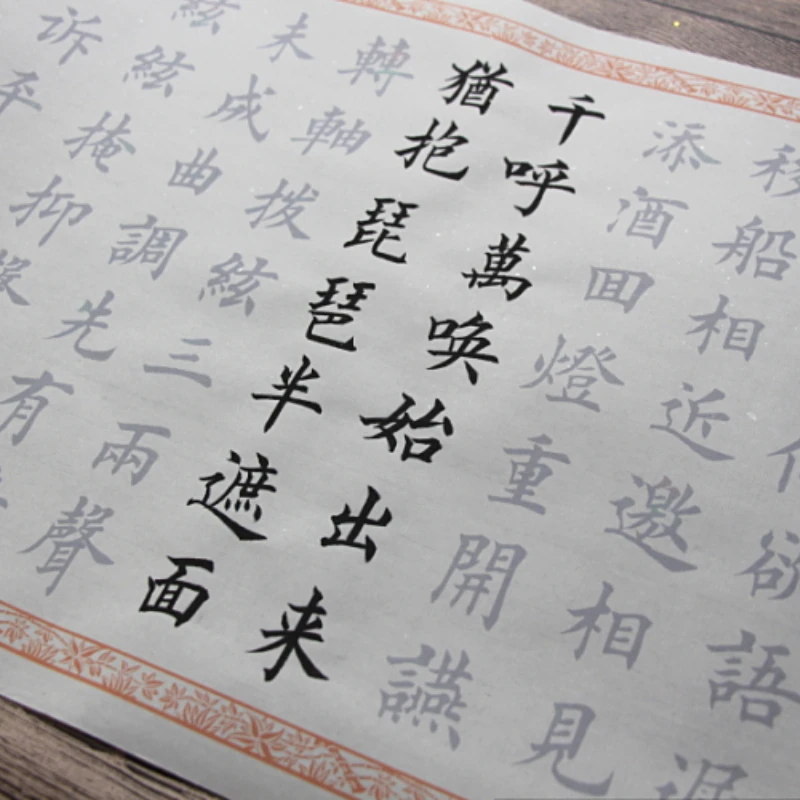 欲語
移船相近邀相見
添酒囬燈重開讌
千呼萬唤始出来
猶抱琵琶半遮面
轉軸拨絃三兩聲
未成曲調先有
絃絃掩抑
訴平